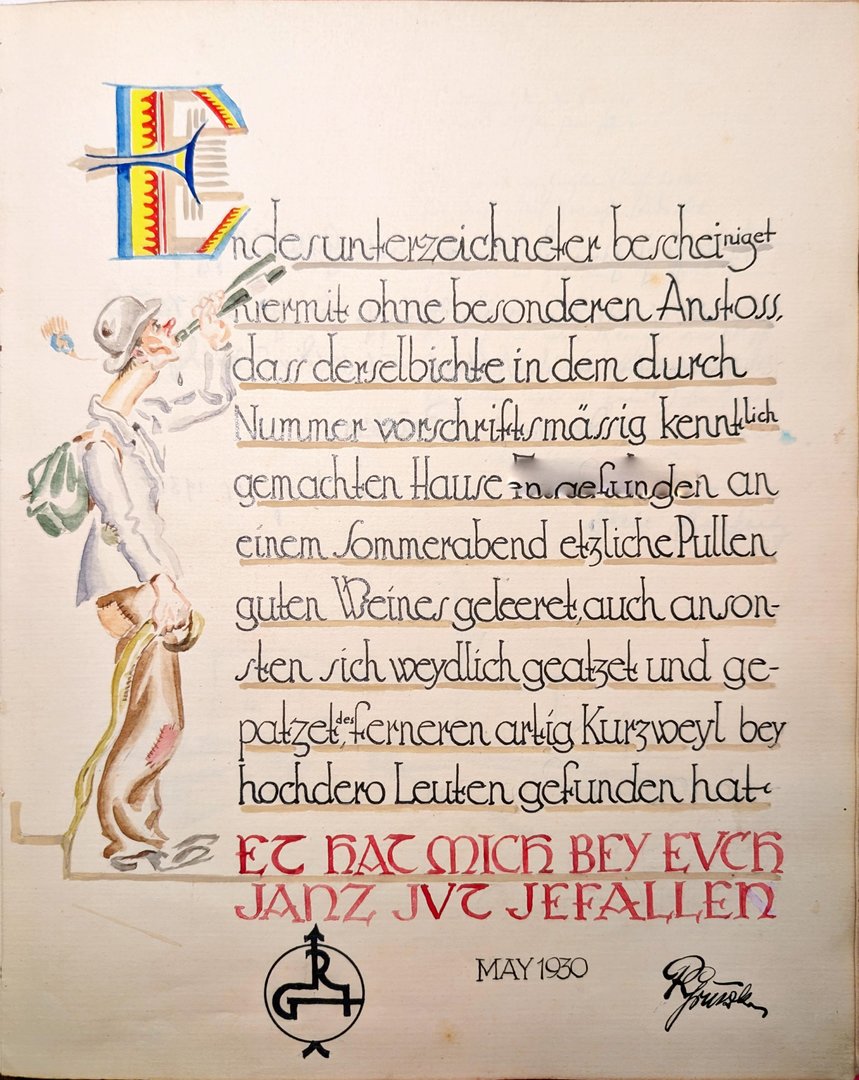 Endesunterzeichneter bescheiniget
hiermit ohne besonderen Anstoss,
dass derselbichte in dem durch
Nummer vorschriftsmässig kenntlich
gemachten Hause an
einem Sommerabend etzliche Pullen
guten Weines geleeret, auch anson-
sten sich weydlich geatzet und ge-
patzet, des ferneren artig Kurzweyl bey
hochdero Leuten gefunden hat
ET HAT MICH BEY EVCH
JANZ JVT JEFALLEN
MAY 1930